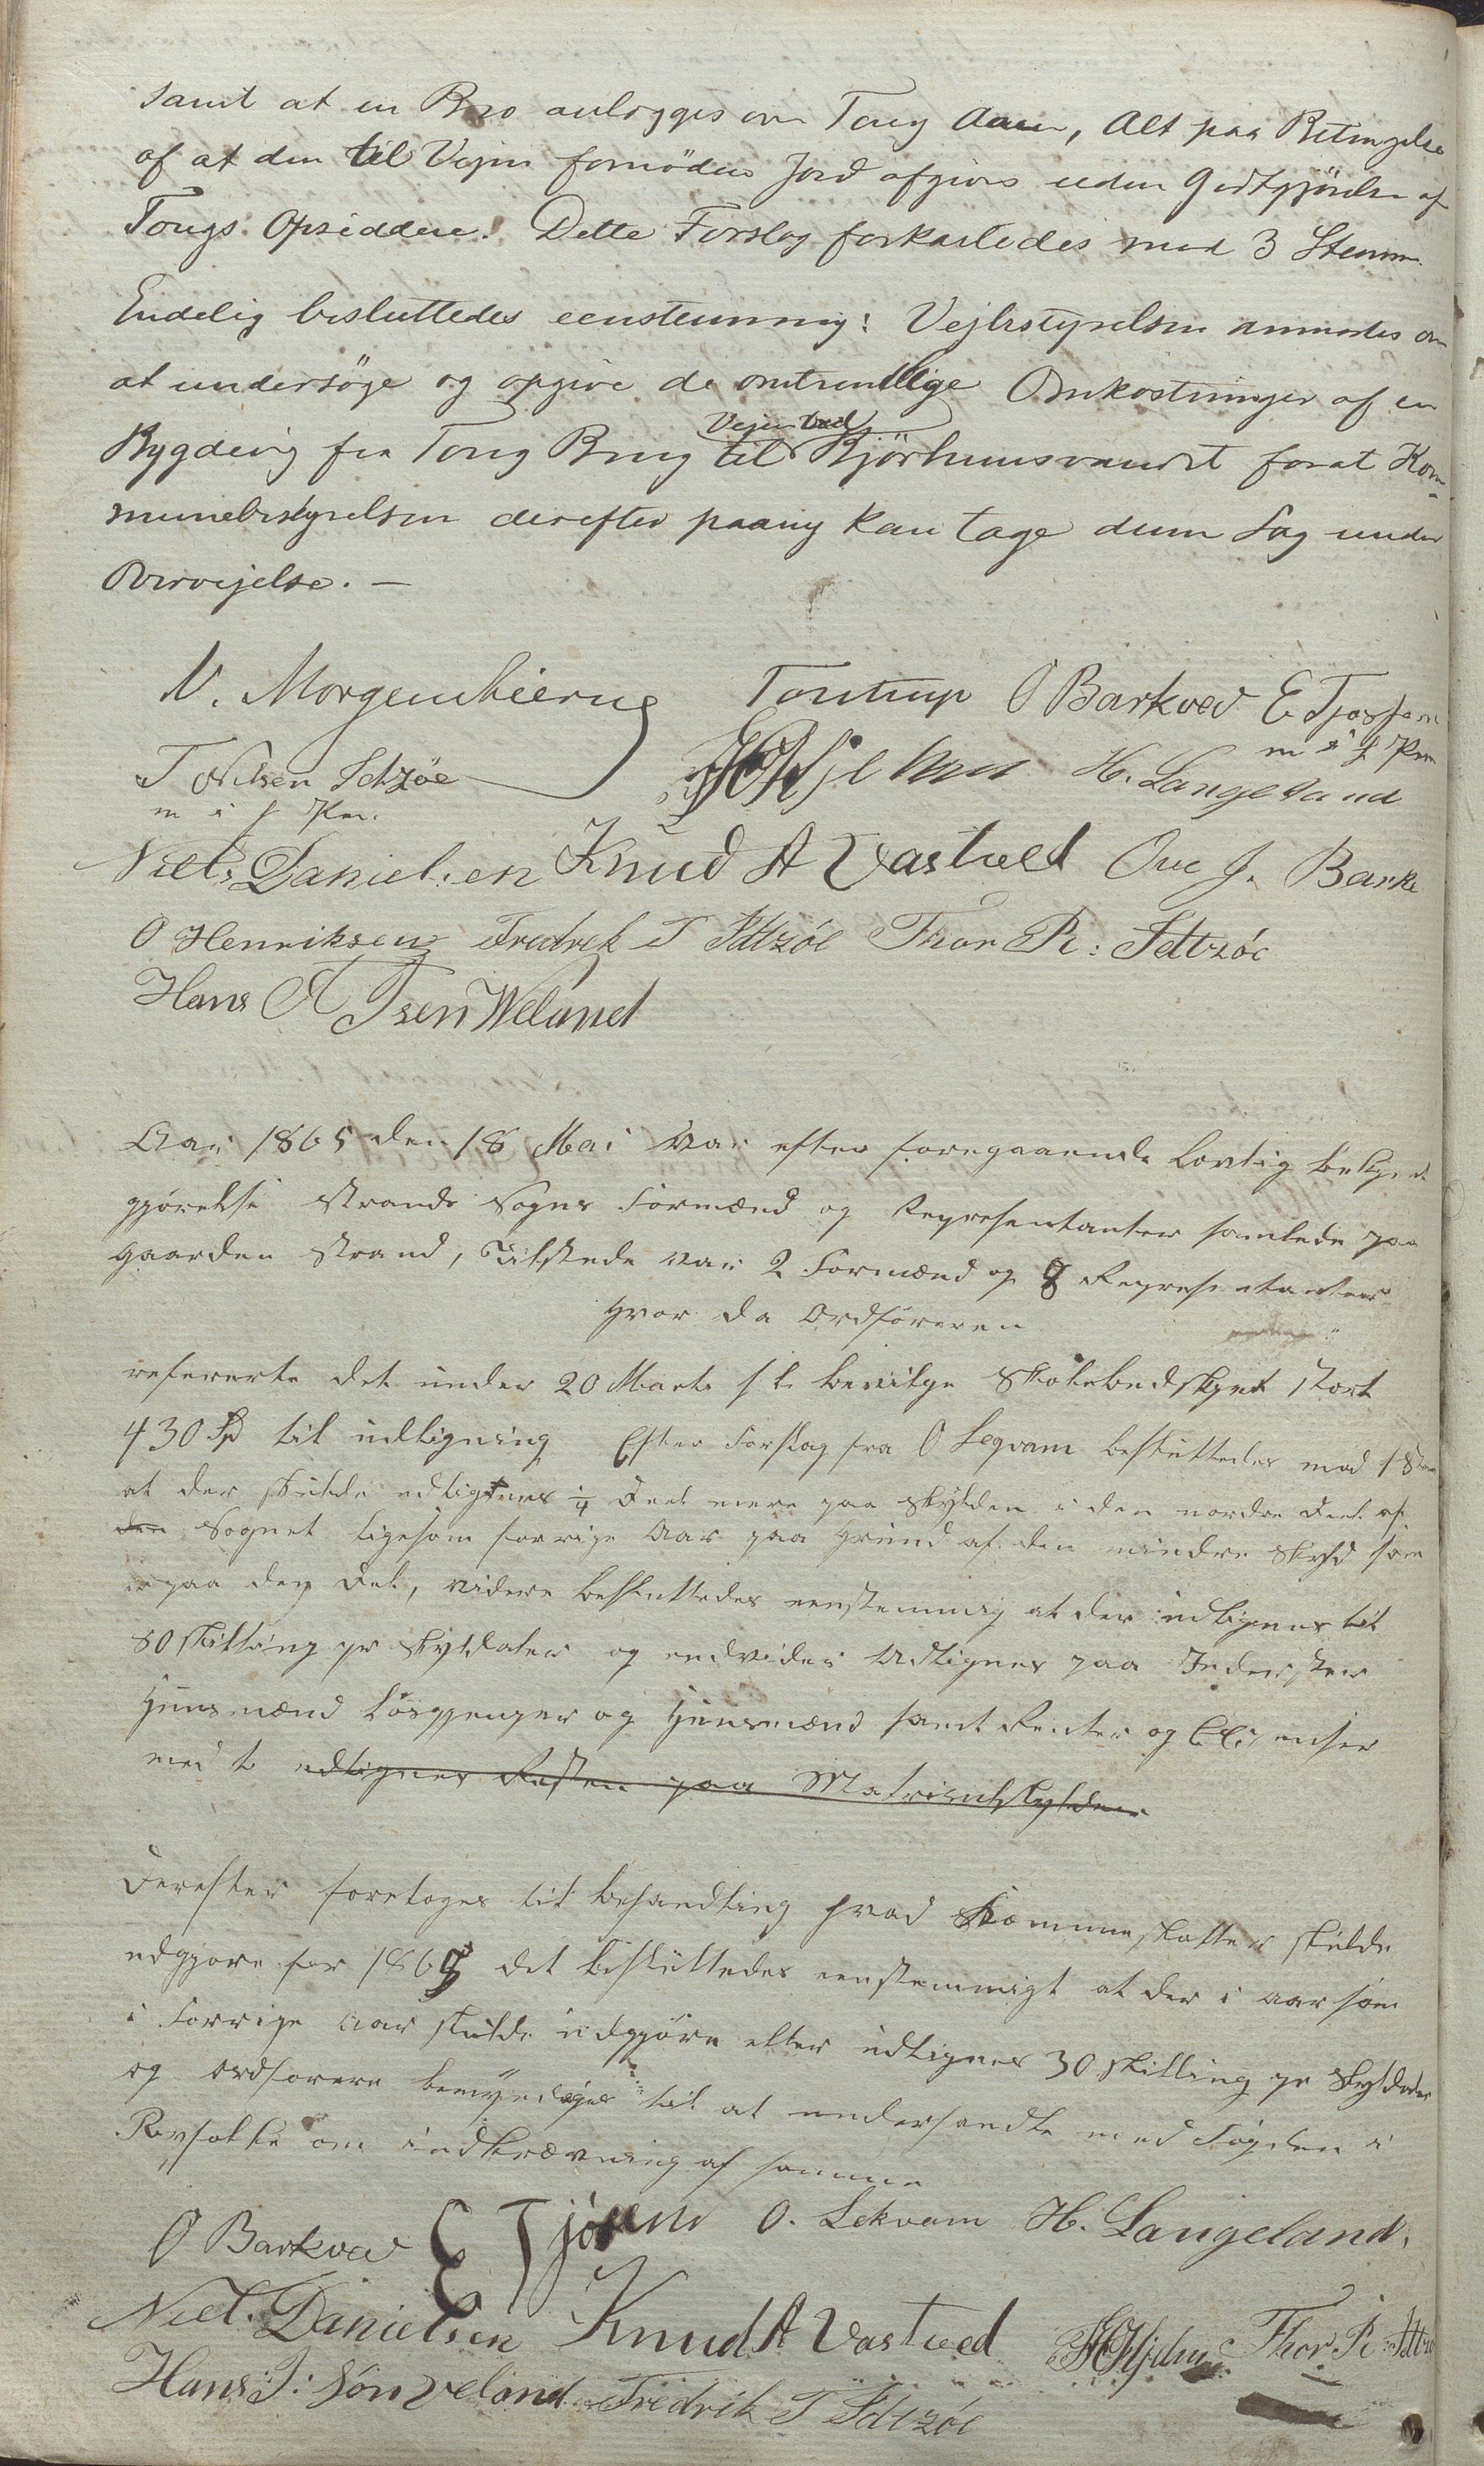 samt at en Bro anlægges over Toug Aaen, Alt paa Betingelse
af at den til Vejen fornødne Jord afgives uden Godtgjörelse af
Tougs Opsiddere. Dette Forslag forkastedes med 3 Stemm.
Endelig besluttedes eenstemmig: Vejbestyrelsen anmodes om
at undersöge og opgive de omtrentlige Omkostninger af en
Vejen ved
Bygdevej fra Toug Brug til Bjørheimsvandet forat Kom=
munebestyrelsen derefter paany kan tage denne Sag under
Overvejelse. —
N. Morgenstierne Tontrup O Barkved E Tjøssem
m i f Pen
T Nilsen Idtzöe H. Langeland
m i f Pen.
Niels Danielsen Knud A Vastved Ove J. Barke
O Henriksen Fredrek T Idtzöe Thor R: Idtzöe
Hans Isen Weland
Aar 1865 den 18 Mai var efter foregaaende lovlig bekjendt
gjørelse Strands Sogns Formænd og Representanter samlede paa
Gaarden Strand, Tilstede var 2 Formænd og 8 Representanter
hvor da Ordføreren
refererte det under 20 Marts s. k. bevilge Skolebudskjet stort
430 Spd til udligning Efter Forslag fra O Leqvam besluttedes mod 1 Stem
at der skulde udlignes 1/4 Deel mere paa Skylden i den nordre Deel af
den Sognet ligesom forrige Aar paa Grund af den mindre Skyld som
er paa den Del, videre besluttedes eenstemmig at der udlignes til
80 skilling pr Skyldaler og endvider udlignes paa Inderster
Huusmænd Løsgjenger og Huusmænd samt Renter og
med udlignes Resten paa Matriculskylden
Derefter foretoges til behandling hvad Kommuneskatter skulde
udgjøre for 1865 det besluttedes eenstemmigt at der i Aar som
i Forrige Aar skulde udgjøre eller udlignes 30 skilling pr Skyldaler
og Ordførere bemyndiges til at underhandle med Fogden i
Ryfylke om indkrævning af samme
O Barkved E Tjøssem O. Lekvam H. Langeland.
Niel. Danielsen Knud A Vastved Thor R Idtzöe
Hans J: søn Veland Fredrik T Idtzöe